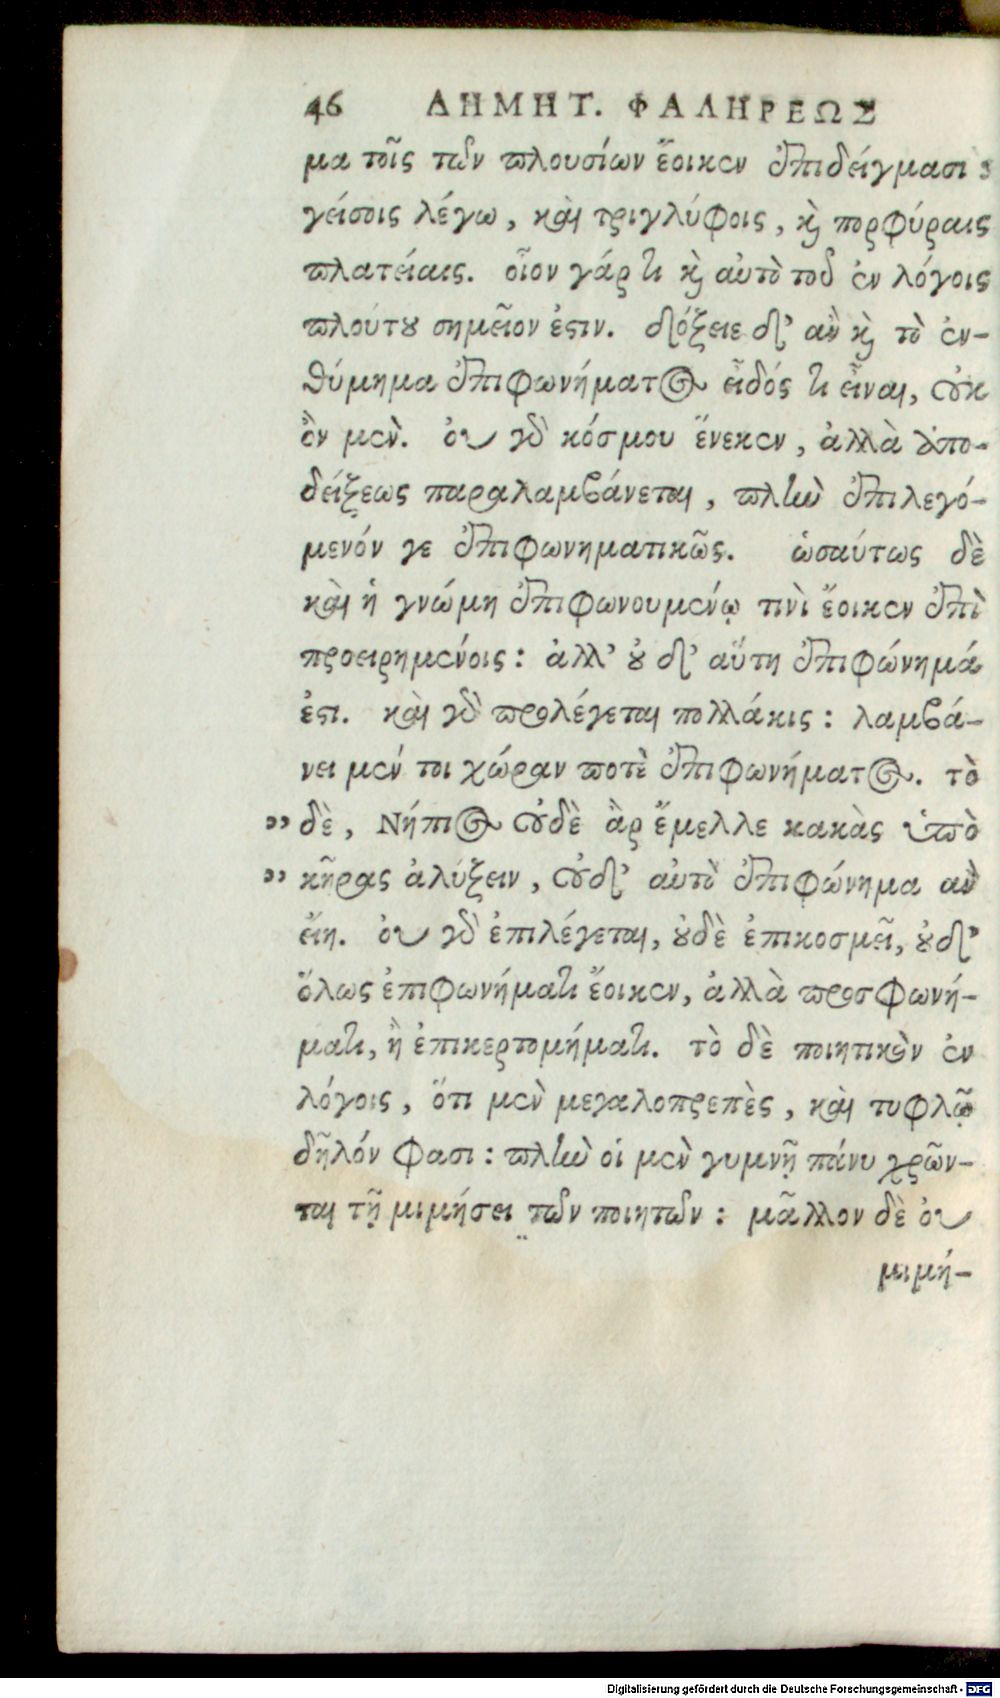 46 ΔΗΜΗΤ. ΦΑΛΗΡΕΩΣ
μα τοῖς τῶν πλουσίων ἔοικεν ἐπιδείγμασι :
γείσοις λέγω, καὶ τριγλύφοις, καὶ πορφύραις
πλατείαις. οἷον γάρ τι καὶ αὐτὸ τοῦ ἐν λόγοις
πλούτου σημεῖον ἐστιν. δόξειε δ' ἂν καὶ τὸ ἐν-
θύμημα ἐπιφωνήματος εἶδός τι εἶναι, οὐκ
ὂν μὲν. οὐ γὰρ κόσμου ἕνεκεν, ἀλλὰ ἀπο-
δείξεως παραλαμβάνεται, πλὴν ἐπιλεγό-
μενόν γε ἐπιφωνηματικῶς. ὡσαύτως δὲ
καὶ ἡ γνώμη ἐπιφωνουμένῳ τινὶ ἔοικεν ἐπὶ
προειρημένοις: ἀλλ' οὐ δ' αὕτη ἐπιφώνημά
ἐστι. καὶ γὰρ προλέγεται πολλάκις: λαμβά-
νει μέν τοι χώραν ποτὲ ἐπιφωνήματος. τὸ
„ δὲ, Νήπιος οὐδὲ ἂρ ἔμελλε κακὰς ὑπὸ
„ κῆρας ἀλύξειν, οὐδ' αὐτὸ ἐπιφώνημα ἂν
εἴη. οὐ γὰρ ἐπιλέγεται, οὐδὲ ἐπικοσμεῖ, οὐδ'
ὅλως ἐπιφωνήματι ἔοικεν, ἀλλὰ προσφωνή-
ματι, ἢ ἐπικερτομήματι. τὸ δὲ ποιητικὸν ἐν
λόγοις, ὅτι μὲν μεγαλοπρεπὲς, καὶ τυφλῷ
δῆλόν φασι: πλὴν οἱ μὲν γυμνῇ πάνυ χρῶν-
ται τῇ μιμήσει τῶν ποιητῶν: μᾶλλον δὲ οὐ
μιμή-
Digitalisierung gefördert durch die Deutsche Forschungsgemeinschaft - DFG